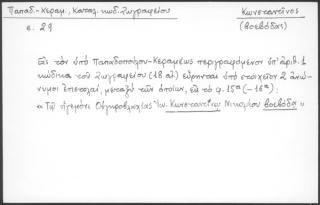 Παπαδ.-Κεραμ., Καταλ. κωδ. Ζωγραφείου
Κωνσταντῖνος
σ. 29
(βοεβόδας)
Εἰς τὸν ὑπὸ Παπαδοπούλου-Κεραμέως περιγραφόμενον ὑπ' ἀριθ. 1
κώδικα τοῦ Ζωγραφείου (18 αἰ) εὕρηνται ὑπὸ στοιχεῖον 2 ἀνώ-
νυμοι ἐπιστολαί, μεταξὺ τῶν ὁποίων, εἰς τὸ φ. 15α (-16α):
«Τῷ ἡγεμόνι Οὑγκροβλαχίας Ἰω. Κωνσταντίνῳ Νικολάου βοεβόδα»